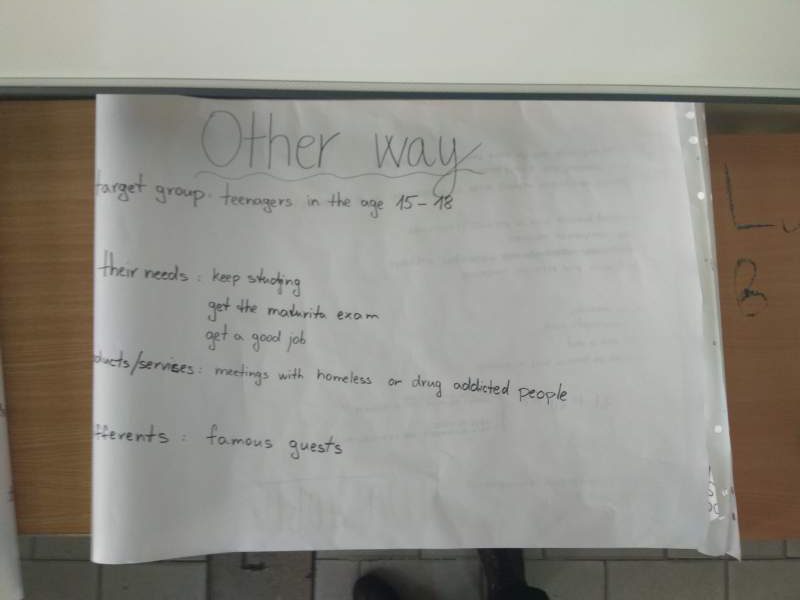 Other way
target group: teenagers in the age 15-18
their needs: keep studing
get the maturita exam
get a good job
ducts/servises: meetings with homeless or drug addicted people
fferents: famous guests
L
B